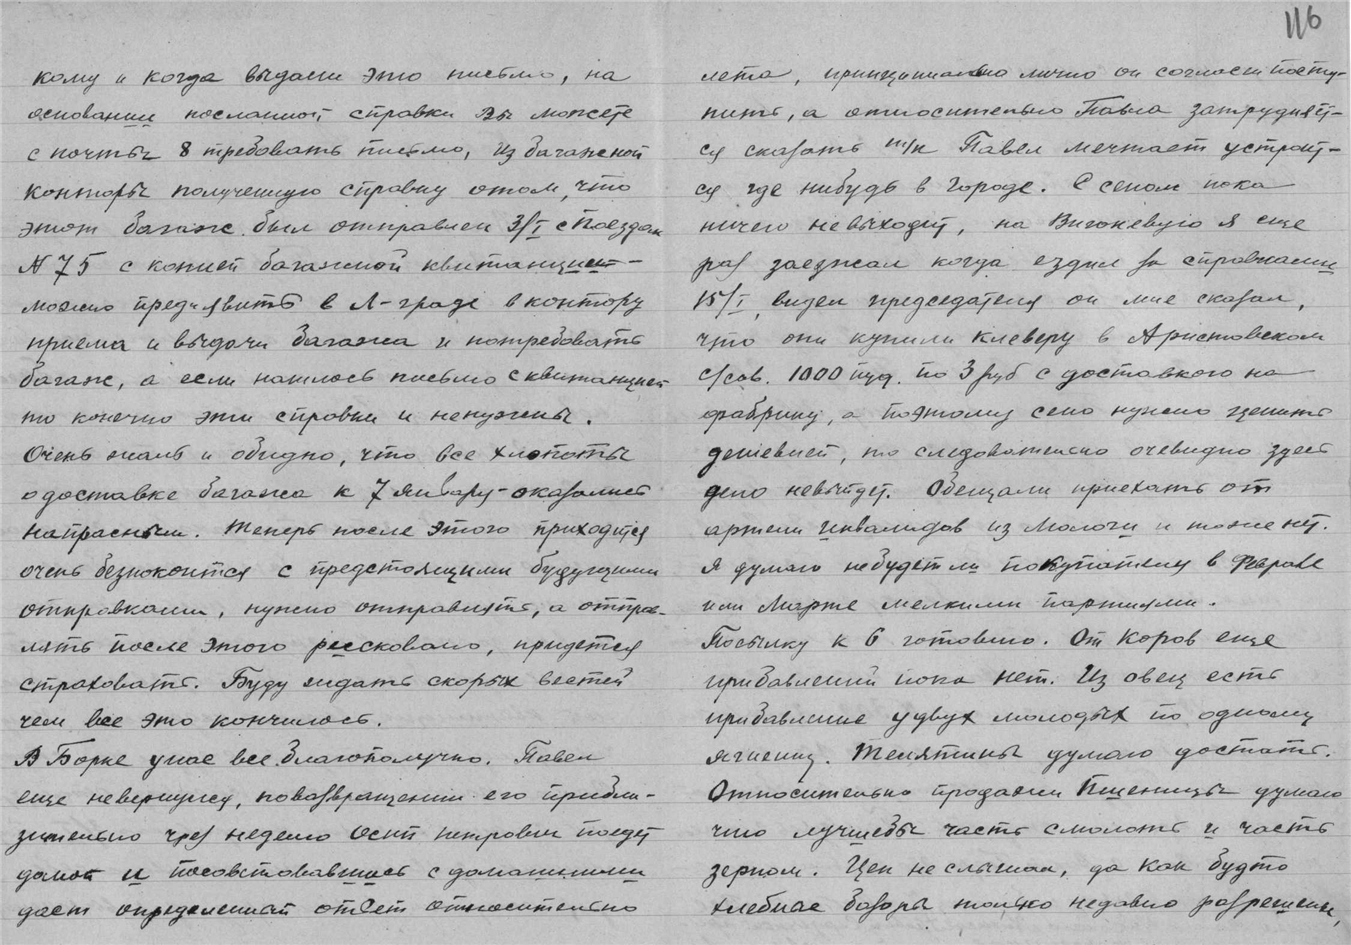 116
кому и когда выдали это письмо, на
основании посланной справки Вы можете
с почты 8 требовать письмо, из багажной
конторы полученную справку отом, что
этот багаж был отправлен 3/I с поездом
N 75 с копией багажной квитанции-
можно предиявить в Л-граде в контору
приема и выдачи багажа и потребовать
багаж, а если нашлось письмо с квитанцией
то конечно эти справки и ненужны.
Очень жаль и обидно, что все хлопоты
о доставке багажа к 7 январу-оказались
напрасными. Теперь после этого приходится
очень безпокоится с предстоящими будущими
отправками, нужно отправлять, а отправ-
лять после этого рисковано, придется
страховать. Буду ждать скорых вестей
чем все это кончилось.
В Борке унас все благополучно. Павел
еще невернулся, повозвращении его прибли-
зительно чрез неделю Осип петрович поедет
домой и посовтовавшись с домашними
даст определенный ответ относительно
лета, принципиально лично он согласен посту-
пить, а относительно Павла затрудняет-
ся сказать т/к Павел мечтает устроит-
ся где нибудь в городе. С сеном пока
ничего невыходит, на Вигоневую я еще
раз заезжал когда ездил за справками
15/I, видел председателя он мне сказал,
что они купили клеверу в Аристовском
с/сов. 1000 пуд. по 3 руб с доставкою на
фабрику, а поэтому сено нужно ценить
дешевлей, то следовательно очевидно здесь
дело невыйдет. Обещали приехать от
артели инвалидов из Мологи и тоже нет.
Я думаю небудет ли покупателу в Феврале
или Марте мелкими партиями.
Посылку к 6 готовлю. От Коров еще
прибавлений пока нет. Из овец есть
прибавление у двух молодых по одному
ягненку. Телятины думаю достать.
Относительно продажи Пшеницы думаю
что лучшебы часть смолоть и часть
зерном. Цен не слышал, да как будто
хлебные базары только недавно разрешены,